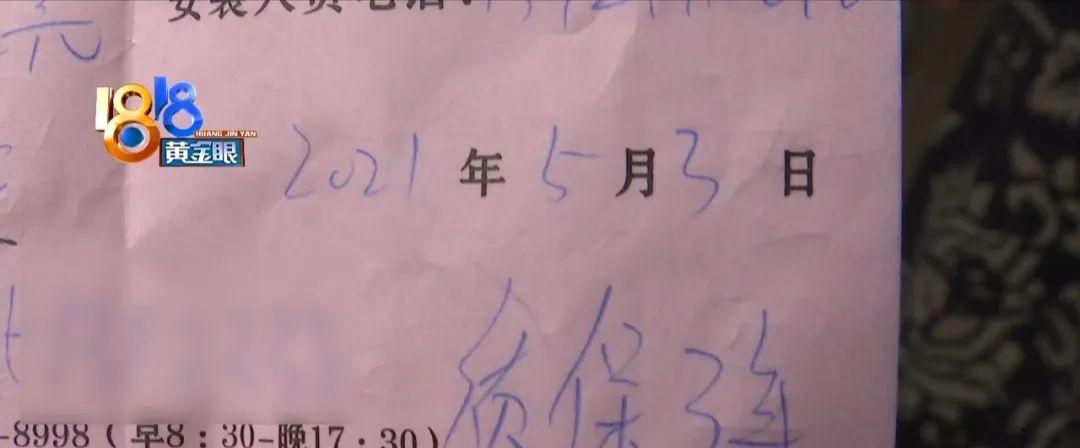 元
安装人员电话：
1818
HUANG JIN YAN
黄金眼
2021年5月3日
质保3年
-8998（早8：30-晚17：30）